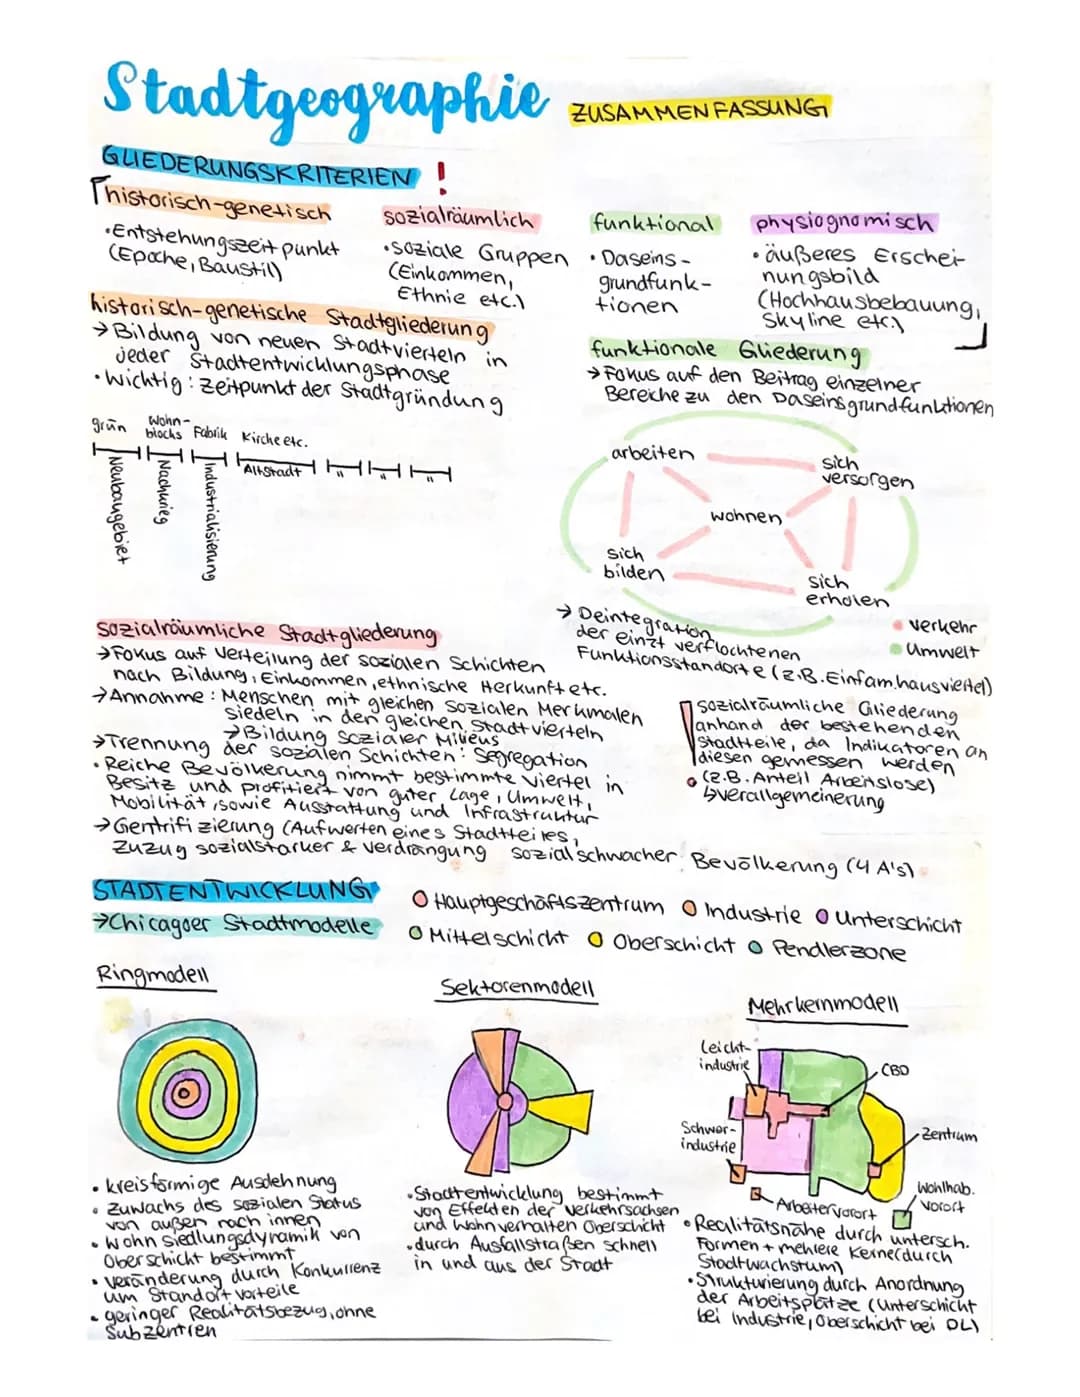 Stadtgeographie ZUSAMMENFASSUNG
GLIEDERUNGSKRITERIEN !
historisch-genetisch
•Entstehungszeitpunkt
(Epoche, Baustil)
sozialräumlich
•soziale Gruppen
(Einkommen,
Ethnie etc.)
funktional
• Daseins-
grundfunk-
tionen
physiognomisch
• äußeres Erschei-
nungsbild
(Hochhausbebauung,
Skyline etc.)
historisch-genetische Stadtgliederung
→ Bildung von neuen Stadtvierteln in
jeder Stadtentwicklungsphase
• wichtig: Zeitpunkt der Stadtgründung
grün Wohn-
blocks Fabrik Kirche etc.
Neubaugebiet
Nachkrieg
Industrialisierung
Altstadt
" " "
funktionale Gliederung
→ Fokus auf den Beitrag einzelner
Bereiche zu den Daseinsgrundfunktionen
arbeiten
sich
versorgen
wohnen
sich
bilden
sich
erholen
• Verkehr
• Umwelt
→ Deintegration
der einzt verflochtenen
Funktionsstandorte (z.B. Einfam.hausviertel)
sozialräumliche Stadtgliederung
→Fokus auf Verteilung der sozialen Schichten
nach Bildung, Einkommen, ethnische Herkunft etc.
→Annahme: Menschen mit gleichen sozialen Merkmalen
siedeln in den gleichen Stadtvierteln
→Bildung sozialer Milieus
→Trennung der sozialen Schichten: Segregation
• Reiche Bevölkerung nimmt bestimmte Viertel in
Besitz und profitiert von guter Lage, Umwelt,
Mobilität, sowie Ausstattung und Infrastruktur
→Gentrifizierung (Aufwerten eines Stadtteiles,
Zuzug sozialstarker & Verdrängung sozialschwacher Bevölkerung (4 A's)
sozialräumliche Gliederung
anhand der bestehenden
Stadtteile, da Indikatoren an
diesen gemessen werden
(z.B. Anteil Arbeitslose)
↳Verallgemeinerung
STADTENTWICKLUNG
→Chicagoer Stadtmodelle
Hauptgeschäftszentrum Industrie Unterschicht
Mittelschicht Oberschicht Pendlerzone
Ringmodell
• kreisförmige Ausdehnung
• Zuwachs des sozialen Status
von außen nach innen
• Wohnsiedlungsdynamik von
Oberschicht bestimmt
• Veränderung durch Konkurrenz
um Standortvorteile
• geringer Realitätsbezug, ohne
Subzentren
Sektorenmodell
•Stadtentwicklung bestimmt
von Effekten der Verkehrsachsen
und Wohnverhalten Oberschicht
• durch Ausfallstraßen schnell
in und aus der Stadt
Mehrkernmodell
Leicht-
industrie
CBD
Schwer-
industrie
Zentrum
Arbeitervorort
Wohlhab.
Vorort
• Realitätsnähe durch untersch.
Formen + mehrere Kerne(durch
Stadtwachstum)
•Strukturierung durch Anordnung
der Arbeitsplätze (Unterschicht
bei Industrie, Oberschicht bei DL)